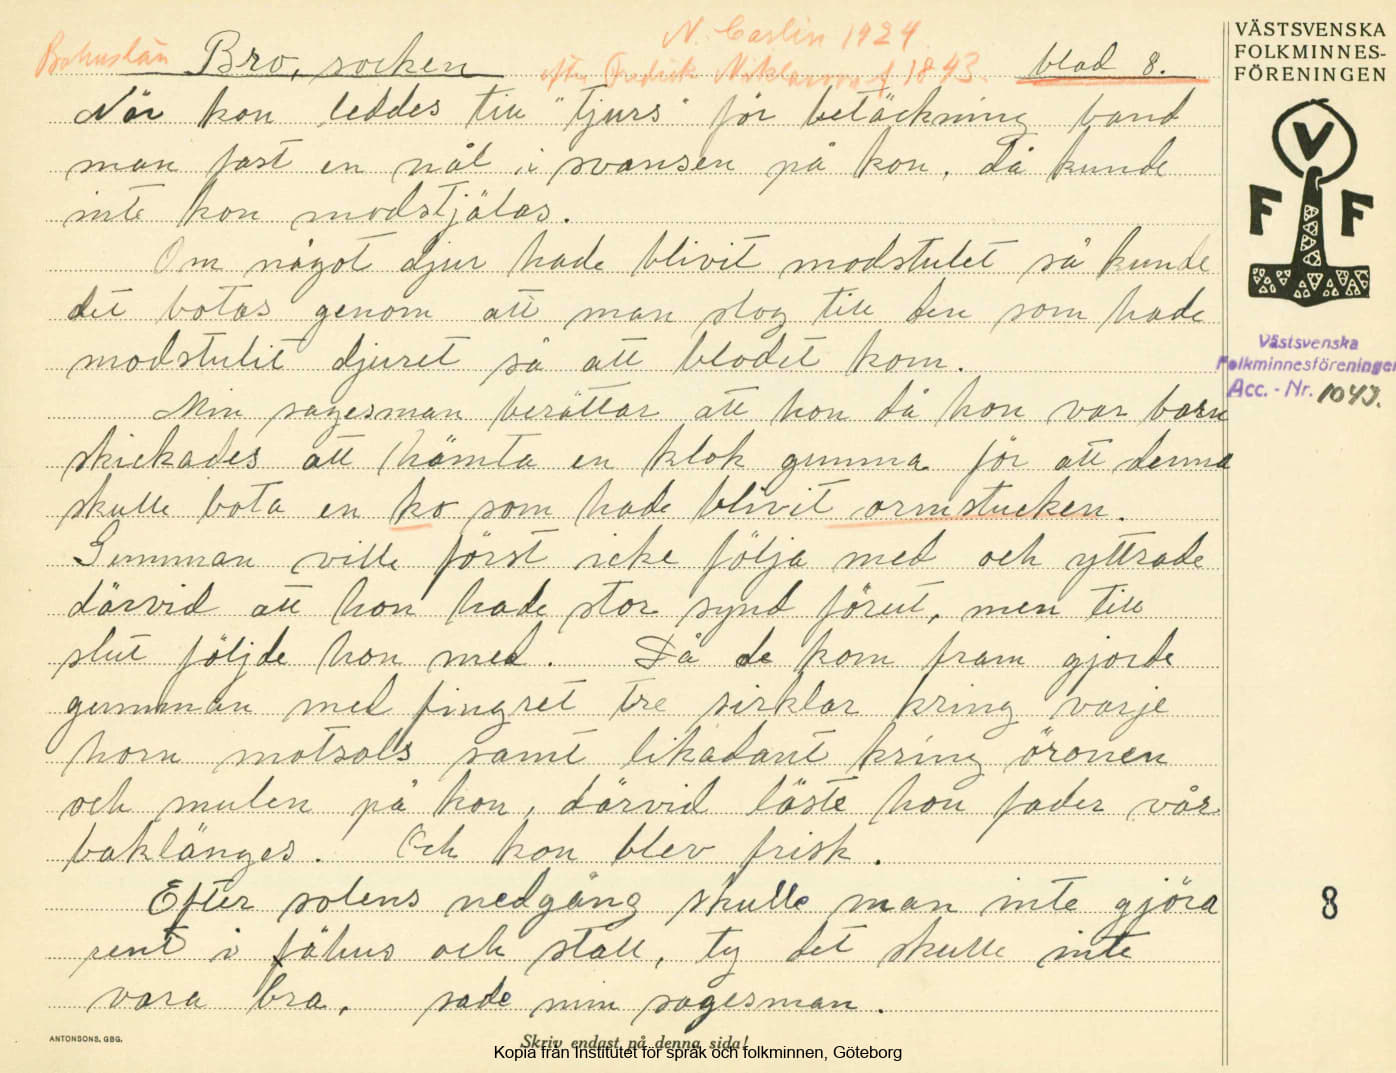 Bohuslän
Bro, socken
N. Carlin 1924
efter Fredrik 1843.
blad 8.
När kon leddes till "tjurs" för betäckning band
man fast en nål i svansen på kon. Då kunde
inte kon modstjälas.
Om något djur hade blivit modstulet så kunde
det botas genom att man slog till den som hade
modstulit djuret så att blodet kom.
Min sagesman berättar att hon då hon var barn
skickades att hämta en klok gumma för att denna
skulle bota en ko som hade blivit ormstucken.
Gumman ville först icke följa med och yttrade
därvid att hon hade stor synd förut, men till
slut följde hon med. Då de kom fram gjorde
gumman med fingret tre sirklar kring varje
horn motsols samt likadant kring öronen
och mulen på kon, därvid läste hon fader vår
baklänges. Och kon blev frisk.
Efter solens nedgång skulle man inte gjöra
rent i fähus och stall, ty det skulle inte
vara bra, sade min sagesman.
ANTONSONS, GBG.
Skriv endast på denna sida!
Kopia från Institutet för språk och folkminnen, Göteborg
VÄSTSVENSKA
FOLKMINNES-
FÖRENINGEN
V
F F
Västsvenska
Folkminnesföreningen
Acc. - Nr. 1043.
8